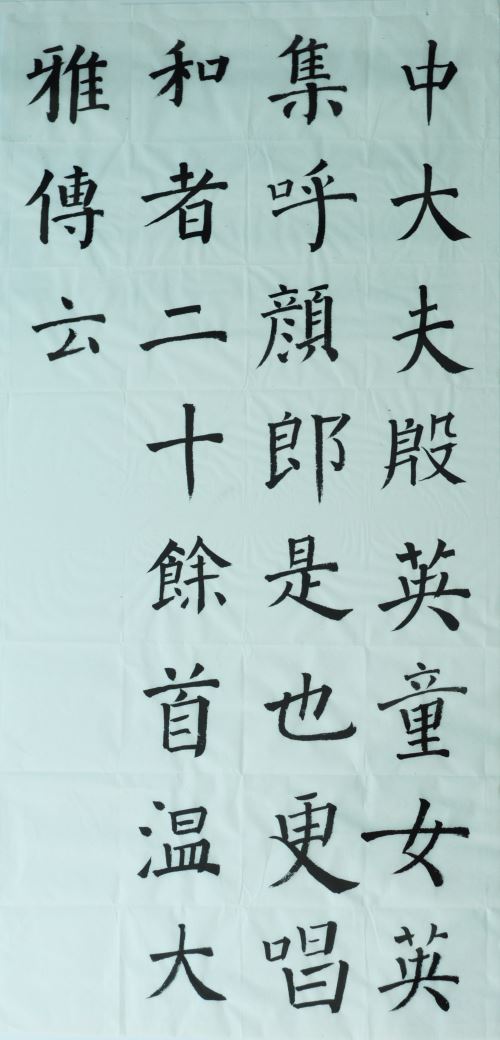 中大夫殷英童女英
集呼顔郎是也更唱
和者二十餘首温大
雅傳云